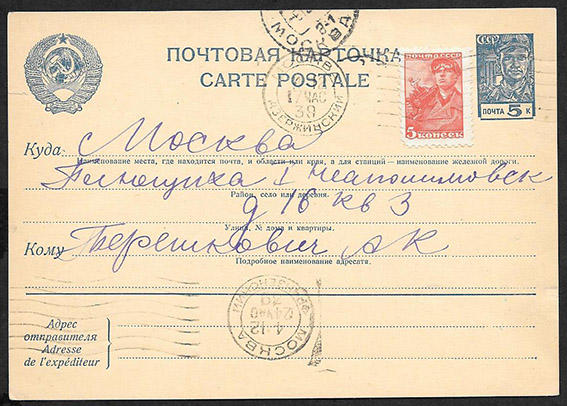 МОСКВА
ПОЧТОВАЯ КАРТОЧКА
CARTE POSTALE
17 ЧАС
39
ДЗЕРЖИНСКИЙ
5 КОПЕЕК
СССР
ПОЧТА 5 К
Куда Москва
Наименование места, где находится почта, и области или края, а для станций — наименование железной дороги.
I
Район, село или деревня.
д 16 кв 3
Улица, № дома и квартиры.
Кому Терешкович АК
Подробное наименование адресата.
4-12
24 ЧАС
39
МОСКВА
Адрес
отправителя
Adresse
de l'expéditeur